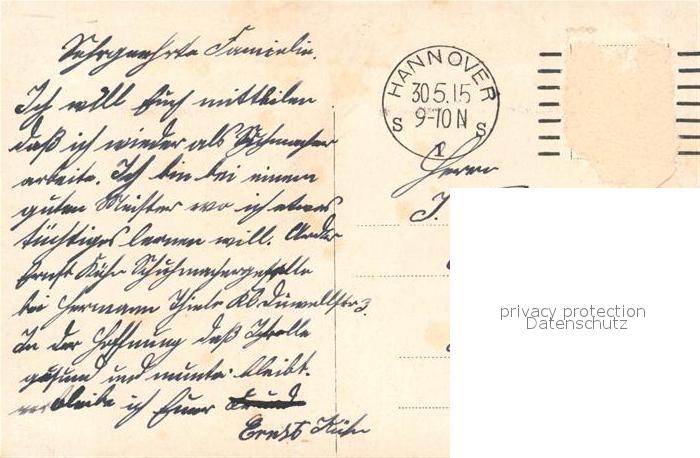 Sehrgeehrte Familie.
Ich will Euch mitteilen
daß ich wieder als Schuhmacher
arbeite. Ich bin bei einem
guten Meister wo ich etwas
tüchtiges lernen will.
Ernst Kühn Schuhmachergeselle
bei Hermann Thiele Kl. Düwellstr 3.
In der Hoffnung daß Ihr alle
gesund und munter bleibt.
verbleibe ich Euer
Ernst Kühn
HANNOVER
30 5.15
9-10 N
S S
1
Herrn
J.
privacy protection
Datenschutz